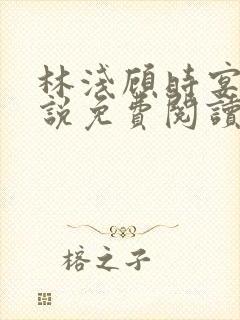 林淺顾時宴
說免費閱讀
榕之子